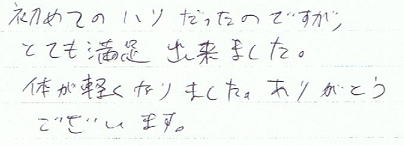 初めてのハリだったのですが、
とても満足出来ました。
体が軽くなりました。ありがとう
ございます。